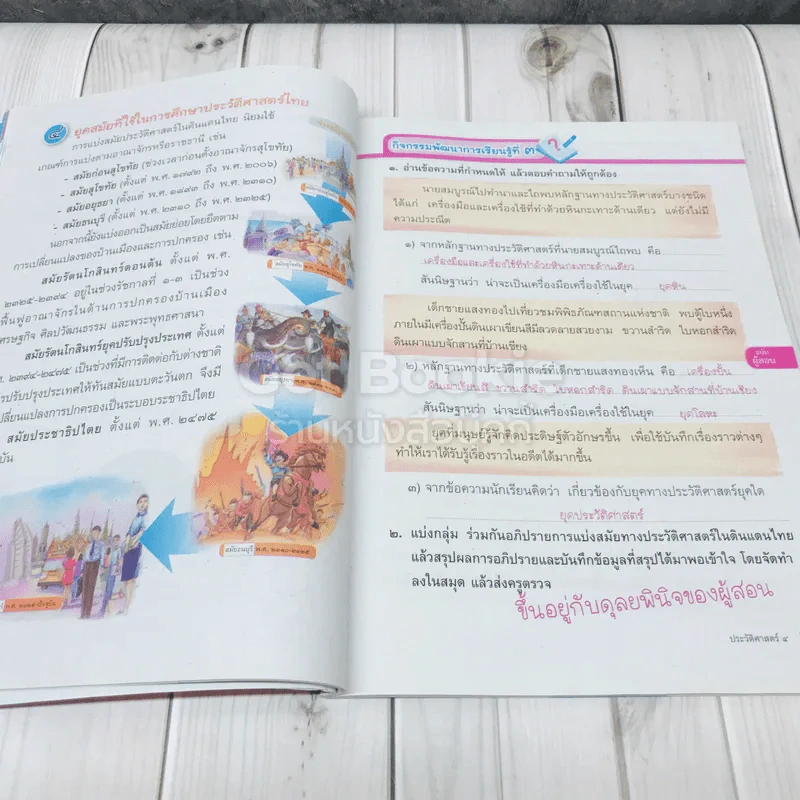 ๔ ยุคสมัยที่ใช้ในการศึกษาประวัติศาสตร์ไทย
การแบ่งสมัยประวัติศาสตร์ในดินแดนไทย นิยมใช้
เกณฑ์การแบ่งตามอาณาจักรหรือราชธานี เช่น
- สมัยก่อนสุโขทัย (ช่วงเวลาก่อนตั้งอาณาจักรสุโขทัย)
- สมัยสุโขทัย (ตั้งแต่ พ.ศ. ๑๗๙๒ ถึง พ.ศ. ๒๐๐๖)
- สมัยอยุธยา (ตั้งแต่ พ.ศ. ๑๘๙๓ ถึง พ.ศ. ๒๓๑๐)
- สมัยธนบุรี (ตั้งแต่ พ.ศ. ๒๓๑๐ ถึง พ.ศ. ๒๓๒๕)
นอกจากนี้ยังแบ่งออกเป็นสมัยย่อยโดยยึดตาม
การเปลี่ยนแปลงของบ้านเมืองและการปกครอง เช่น
สมัยรัตนโกสินทร์ตอนต้น ตั้งแต่ พ.ศ.
๒๓๒๕-๒๓๙๔ อยู่ในช่วงรัชกาลที่ ๑-๓ เป็นช่วง
ฟื้นฟูอาณาจักรในด้านการปกครองบ้านเมือง
เศรษฐกิจ ศิลปวัฒนธรรม และพระพุทธศาสนา
สมัยรัตนโกสินทร์ยุคปรับปรุงประเทศ ตั้งแต่
๒๓๙๔-๒๔๗๕ เป็นช่วงที่มีการติดต่อกับต่างชาติ
การปรับปรุงประเทศให้ทันสมัยแบบตะวันตก จึงมี
เปลี่ยนแปลงการปกครองเป็นระบอบประชาธิปไตย
สมัยประชาธิปไตย ตั้งแต่ พ.ศ. ๒๔๗๕
สมัยธนบุรี พ.ศ. ๒๓๑๐-๒๓๒๕
กิจกรรมพัฒนาการเรียนรู้ที่ ๓
๑. อ่านข้อความที่กำหนดให้ แล้วตอบคำถามให้ถูกต้อง
นายสมบูรณ์ไปทำนาและไถพบหลักฐานทางประวัติศาสตร์บางชนิด
ได้แก่ เครื่องมือและเครื่องใช้ที่ทำด้วยหินกะเทาะด้านเดียว แต่ยังไม่มี
ความประณีต
๑) จากหลักฐานทางประวัติศาสตร์ที่นายสมบูรณ์ไถพบ คือ
เครื่องมือและเครื่องใช้ที่ทำด้วยหินกะเทาะด้านเดียว
สันนิษฐานว่า น่าจะเป็นเครื่องมือเครื่องใช้ในยุค ยุคหิน
เด็กชายแสงทองไปเที่ยวชมพิพิธภัณฑสถานแห่งชาติ พบตู้ใบหนึ่ง
ภายในมีเครื่องปั้นดินเผาเขียนสีมีลวดลายสวยงาม ขวานสำริด ใบหอกสำริด
ดินเผาแบบจักสานที่บ้านเชียง
๒) หลักฐานทางประวัติศาสตร์ที่เด็กชายแสงทองเห็น คือ เครื่องปั้น
ดินเผาเขียนสี ขวานสำริด ใบหอกสำริด ดินเผาแบบจักสานที่บ้านเชียง
สันนิษฐานว่า น่าจะเป็นเครื่องมือเครื่องใช้ในยุค ยุคโลหะ
ยุคที่มนุษย์รู้จักคิดประดิษฐ์ตัวอักษรขึ้น เพื่อใช้บันทึกเรื่องราวต่างๆ
ทำให้เราได้รับรู้เรื่องราวในอดีตได้มากขึ้น
๓) จากข้อความนักเรียนคิดว่า เกี่ยวข้องกับยุคทางประวัติศาสตร์ยุคใด
ยุคประวัติศาสตร์
๒. แบ่งกลุ่ม ร่วมกันอภิปรายการแบ่งสมัยทางประวัติศาสตร์ในดินแดนไทย
แล้วสรุปผลการอภิปรายและบันทึกข้อมูลที่สรุปได้มาพอเข้าใจ โดยจัดทำ
ลงในสมุด แล้วส่งครูตรวจ
ขึ้นอยู่กับดุลยพินิจของผู้สอน
ฉบับ
ผู้สอน
ประวัติศาสตร์ ๔
Get Bookie
ร้านหนังสือนุกนิก